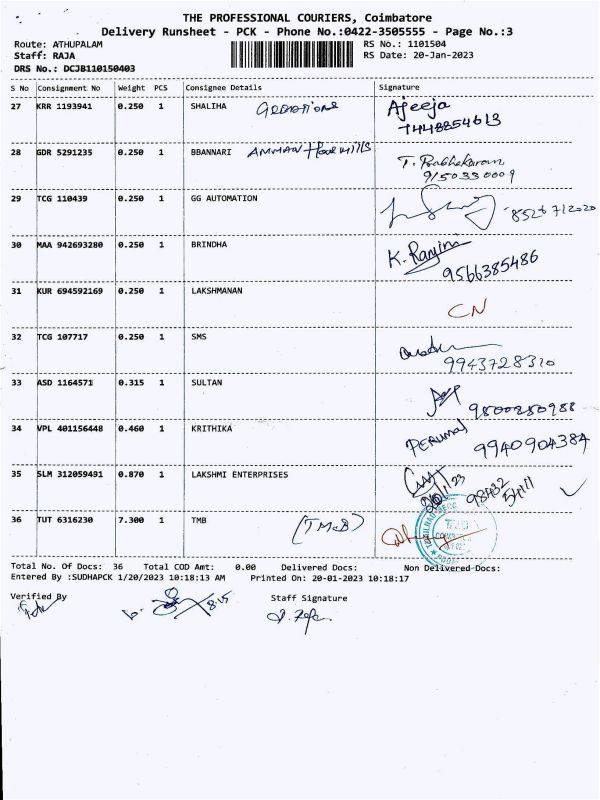 THE PROFESSIONAL COURIERS, Coimbatore
Delivery Runsheet - PCK - Phone No.:0422-3505555 - Page No.:3
Route: ATHUPALAM
RS No.: 1101504
Staff: RAJA
RS Date: 20-Jan-2023
DRS No.: DCJB110150403
S No Consignment No Weight PCS Consignee Details Signature
27 KRR 1193941 0.250 1 SHALIHA Ajeeja
7448854613
28 GDR 5291235 0.250 1 BBANNARI AMMAN Flour Mills T. Prabhakaran
9150330009
29 TCG 110439 0.250 1 GG AUTOMATION
30 MAA 942693280 0.250 1 BRINDHA K. Ranjini
9566385486
31 KUR 694592169 0.250 1 LAKSHMANAN CN
32 TCG 107717 0.250 1 SMS
9943728310
33 ASD 1164571 0.315 1 SULTAN
9500250988
34 VPL 401156448 0.460 1 KRITHIKA PERUMAL 9940904384
35 SLM 312059491 0.870 1 LAKSHMI ENTERPRISES
36 TUT 6316230 7.300 1 TMB (TMB)
Total No. Of Docs: 36 Total COD Amt: 0.00 Delivered Docs: Non Delivered Docs:
Entered By :SUDHAPCK 1/20/2023 10:18:13 AM Printed On: 20-01-2023 10:18:17
Verified By Staff Signature
8:15